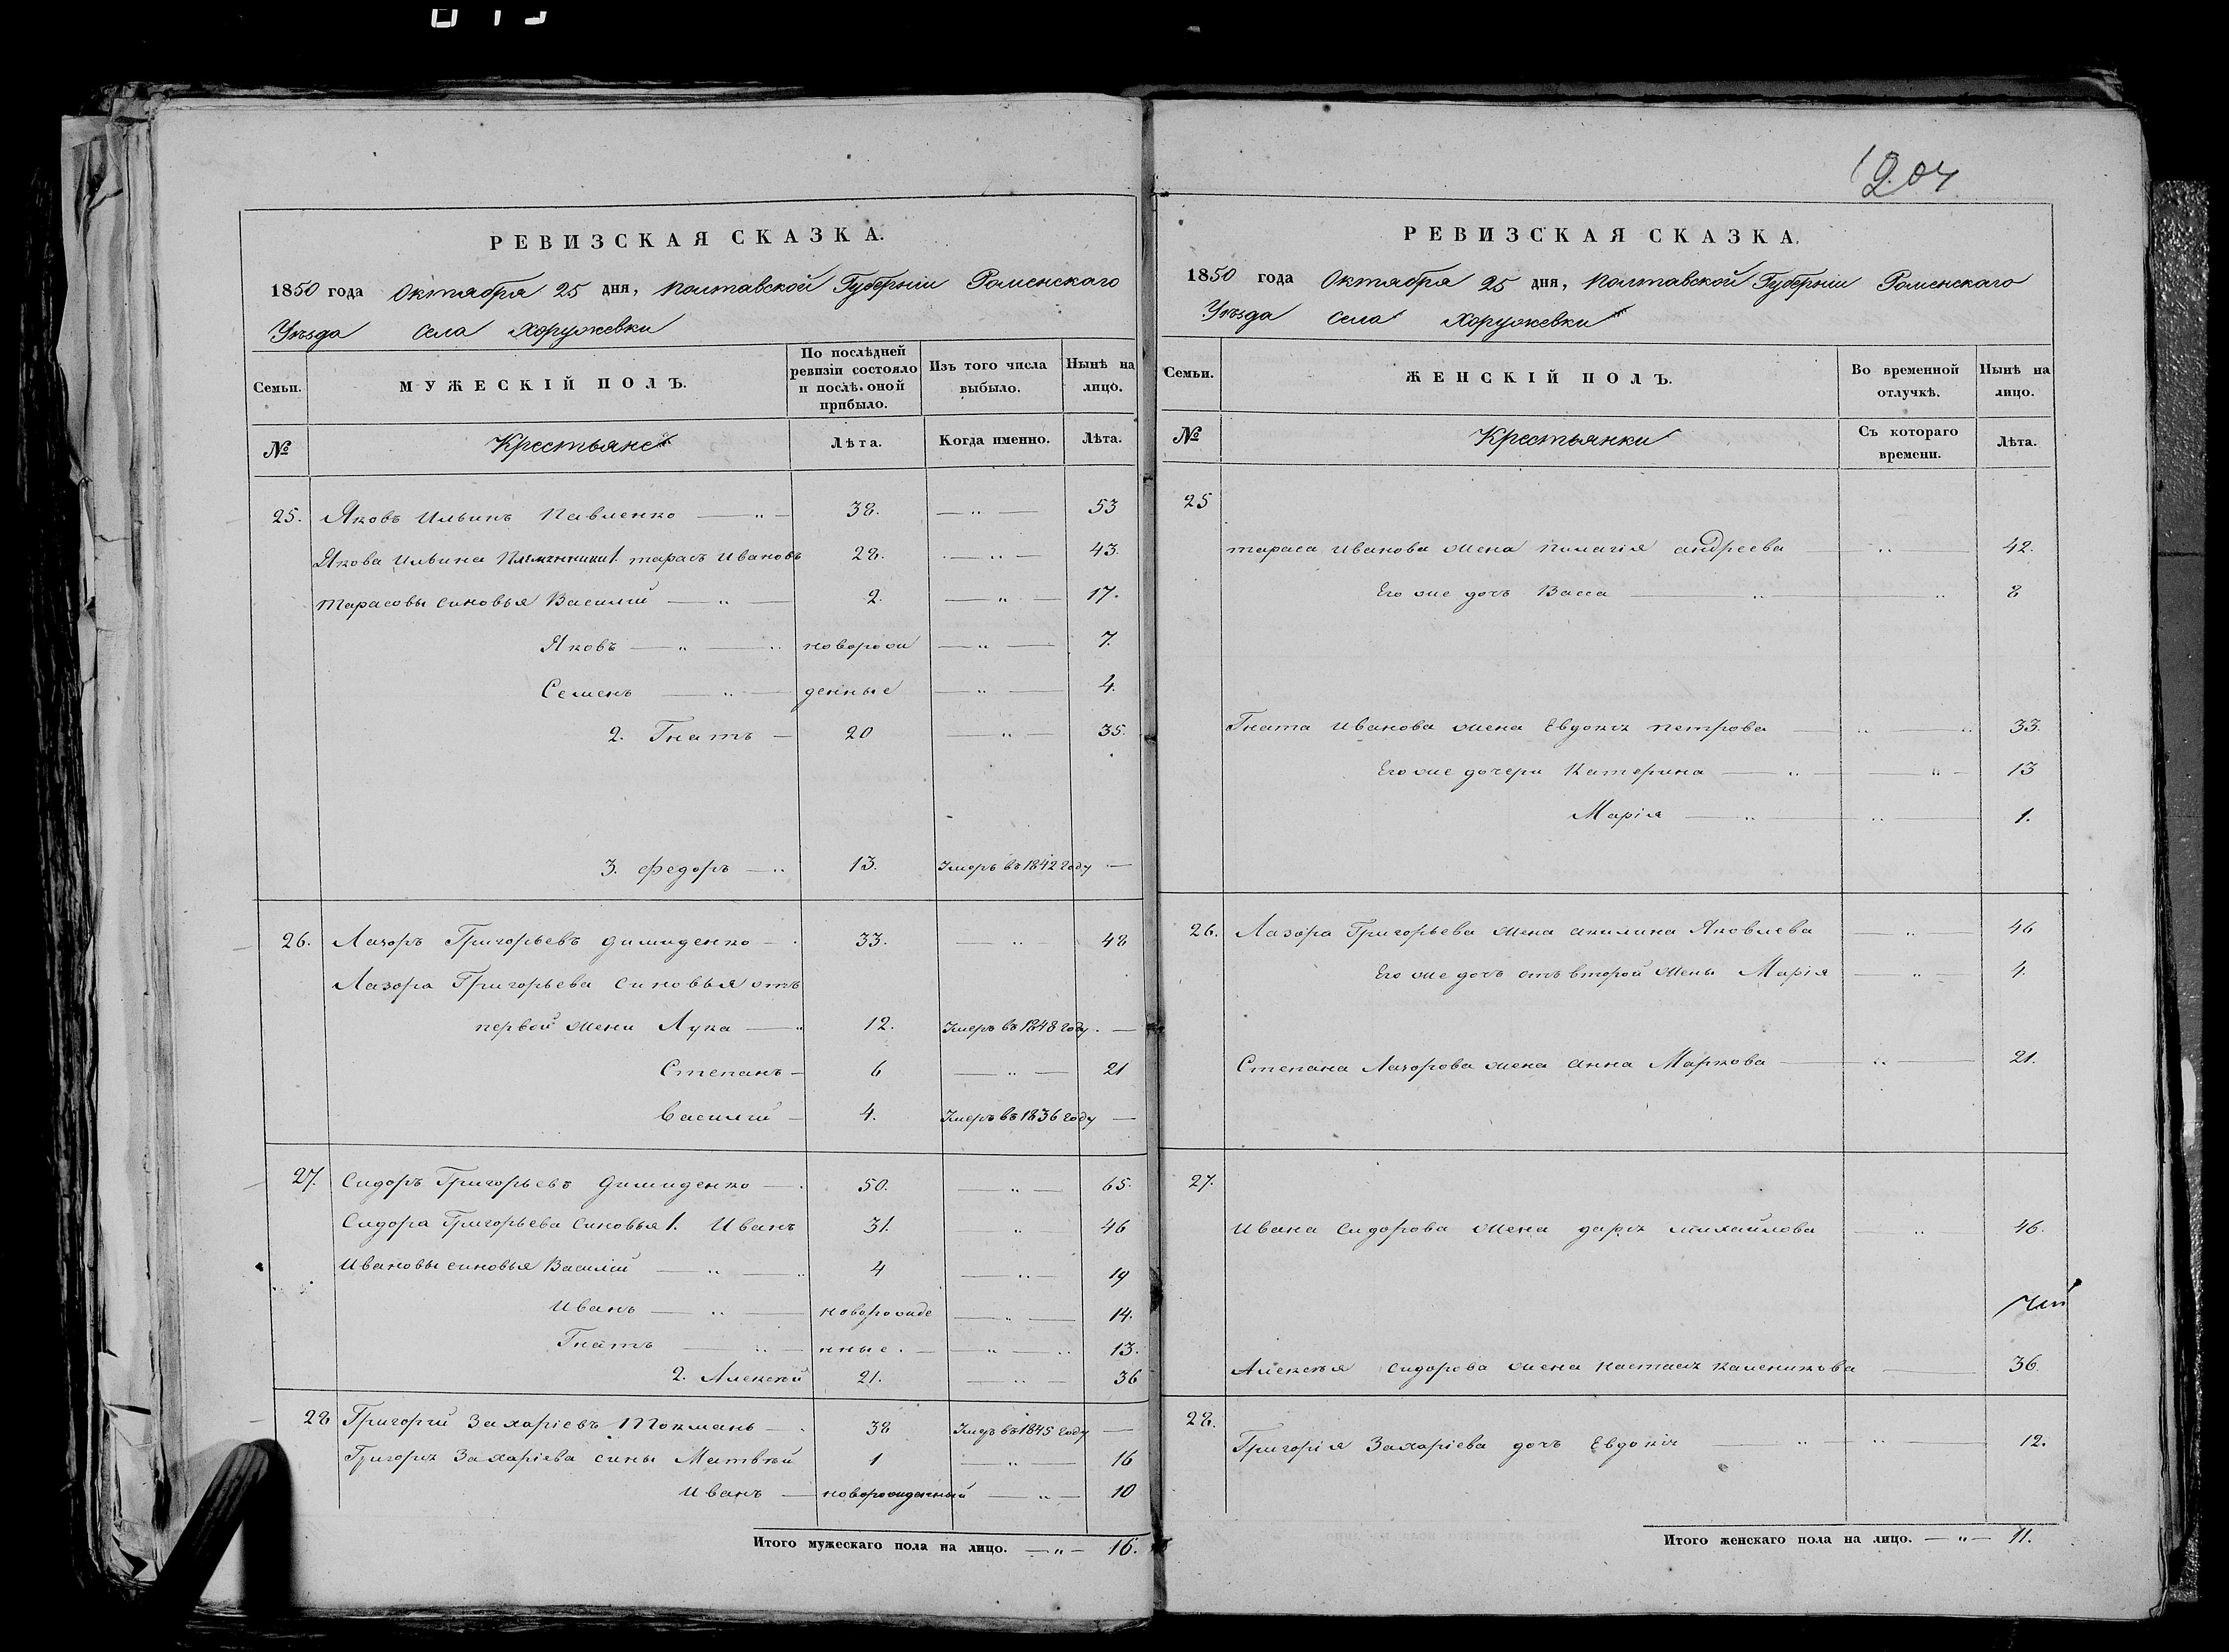 1204
РЕВИЗСКАЯ СКАЗКА.
1850 года Октября 25 дня, Полтавской Губернiи Роменскаго
Уѣзда села Хоружевки
Семьи.
МУЖЕСКIЙ ПОЛЪ.
По послѣдней ревизiи состояло и послѣ оной прибыло.
Изъ того числа выбыло.
Нынѣ на лицо.
№
Крестьяне
Лѣта.
Когда именно.
Лѣта.
25. Яковъ Ильинъ Павленко — " — 38. — " — 53
Якова Ильина Племянники 1. тарасъ Ивановъ 28. — " — 43.
Тарасовы синовья Василiй — " — 2. — " — 17.
Яковъ — " — " новорож — " — 7.
Семенъ — " — денные — " — 4.
2. Гнатъ — 20 — " — 35.
3. Федоръ — " 13. Умеръ въ 1842 году —
26. Лазоръ Григорьевъ Димиденко — 33. — " — 48
Лазора Григорьева синовья отъ
первой жени Лука — " 12. Умеръ въ 1848 году. —
Степанъ — 6 — " — 21
Василiй — 4. Умеръ въ 1836 году —
27. Сидоръ Григорьевъ Димиденко — 50. — " — 65.
Сидора Григорьева синовья 1. Иванъ 31. — " — 46
Ивановы синовья Василiй — " — " 4 — " — 19
Иванъ — " — новорожде — " — 14.
Гнатъ — " — нные. — " — " 13.
2. Алексѣй 21. — " — 36
28 Григорiй Захарiевъ Токмань — 38 Умеръ въ 1845 году —
Григорiя Захарiева сины Матвѣй 1 — " — 16
Иванъ — новорожденный — " — 10
Итого мужескаго пола на лицо. — " — 16.
РЕВИЗСКАЯ СКАЗКА.
1850 года Октября 25 дня, Полтавской Губернiи Роменскаго
Уѣзда села Хоружевки
Семьи.
ЖЕНСКIЙ ПОЛЪ.
Во временной отлучкѣ.
Нынѣ на лицо.
№
Крестьянки
Съ котораго времени.
Лѣта.
25
тараса Иванова жена Пилагiя андреева — " — 42.
Его же дочъ Васса — " — " 8
Гната Иванова жена Евдокiя петрова — " — " 33.
Его же дочери Катерина — " — " — 13
Марiя — " — " — 1.
26. Лазора Григорьева жена акилина Яковлева — " — 46
Его же дочъ отъ второй жены Марiя — " — 4.
Степана Лазорова жена анна Маркова — " — 21.
27.
Ивана Сидорова жена дарiя михайлова — " — 46.
Алексѣя Сидорова жена Настасiя Каленикова — 36.
28.
Григорiя Захарiева дочъ Евдокiя " — " — 12.
Итого женскаго пола на лицо. — " — 11.